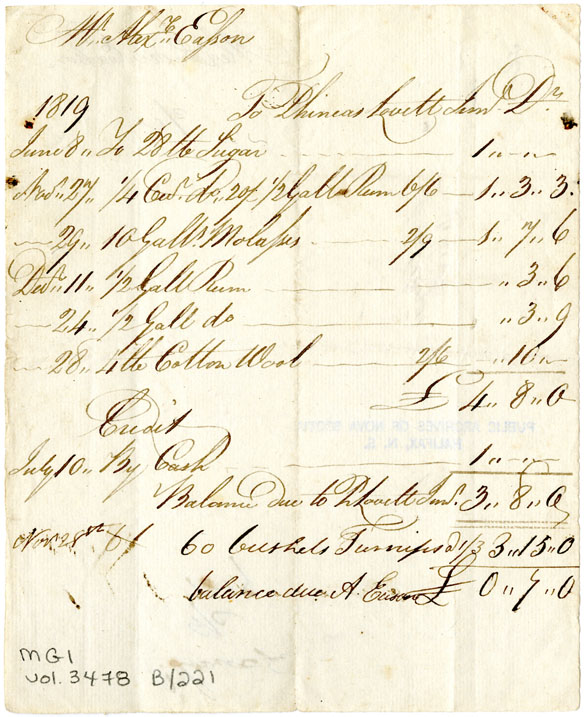 Mr. Alexr. Easson
1819 To Phineas Lovett Junr. Dr.
June 8 " To 28 lb Sugar 1 " - " -
Novr. 27 " 1/4 Cwt. do, 20/ 1/2 Gall Rum 6/6 1 " 3 " 3
29 " 10 Galls. Molasses 2/9 1 " 7 " 6
Decr. 11 " 1/2 Gall Rum " 3 " 6
24 " 1/2 Gall do " 3 " 9
28 " 4 lb Cotton Wool 2/6 " 10 " -
£ 4 " 8 " 0
Credit
July 10 " By Cash 1 " - " -
Balance due to P Lovett Junr. 3 " 8 " 0
Novr 28th By 60 bushels Turnips 1/3 3 " 15 " 0
balance due A. Easson £ 0 " 7 " 0
PUBLIC ARCHIVES OF NOVA SCOTIA
HALIFAX, N. S.
MG1
vol. 3478 B/221